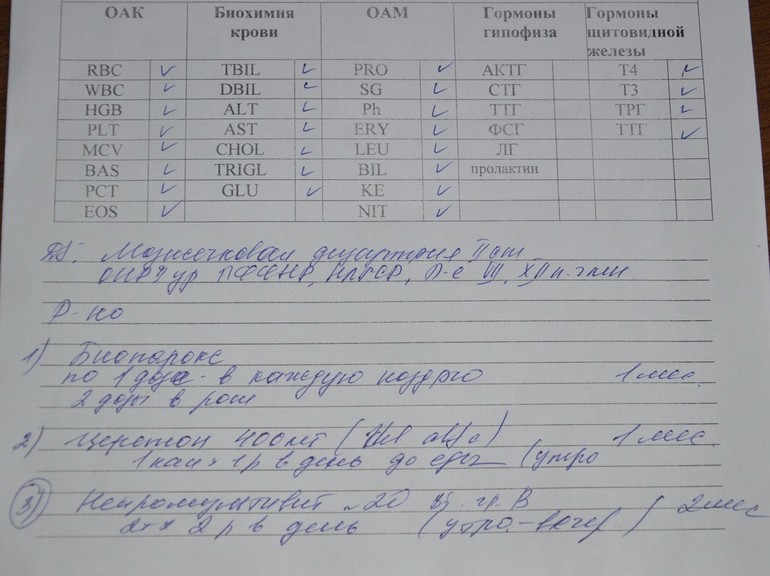 ОАК Биохимия крови ОАМ Гормоны гипофиза Гормоны щитовидной железы
RBC TBIL PRO АКТГ Т4
WBC DBIL SG СТГ Т3
HGB ALT Ph ТТГ ТРГ
PLT AST ERY ФСГ ТТГ
MCV CHOL LEU ЛГ
BAS TRIGL BIL пролактин
PCT GLU KE
EOS NIT
DS: Мозжечковая дизартрия II ст
Р-но
1) Биопарокс
по 1 дозе - в каждую ноздрю 1 мес.
2 дозы в рот
2) Церетон 400 мг 1 мес.
1 кап 1 р в день до еды (утро
3) Нейромультивит №20 гр. В 2 мес
2 р в день (утро-вечер)